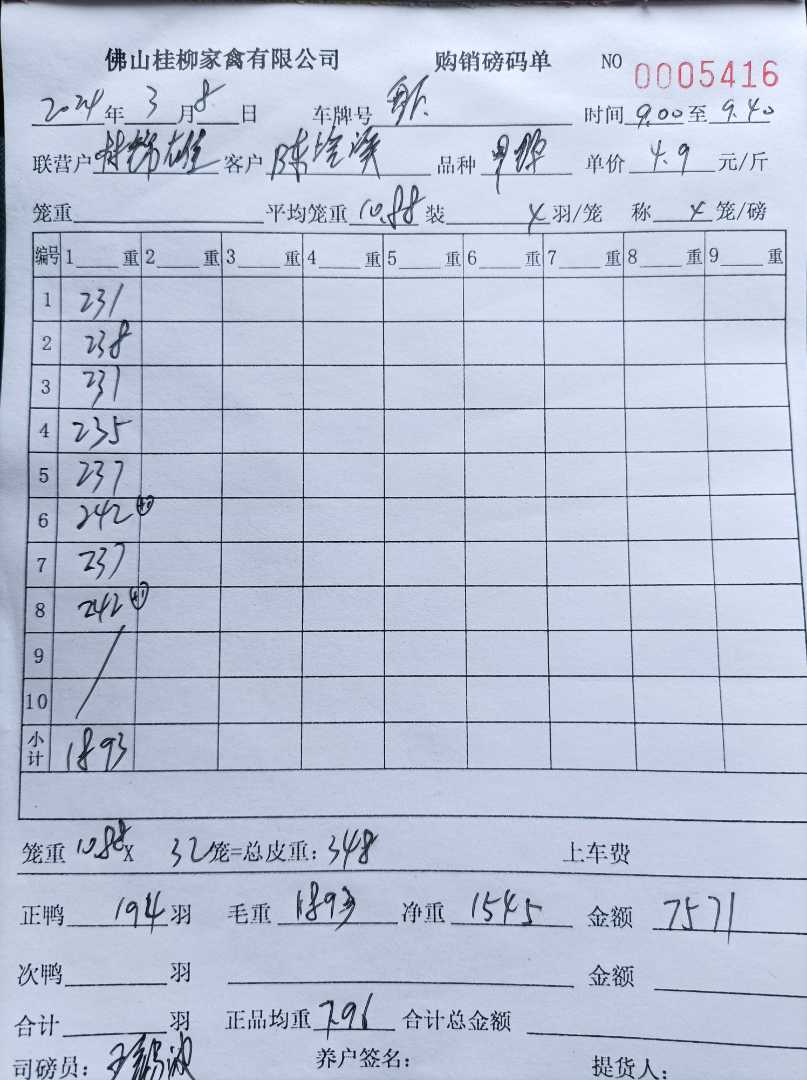 佛山桂柳家禽有限公司 购销磅码单 NO 0005416
2024年3月8日 车牌号 时间 9.00 至 9.40
联营户 林锦雄 客户 品种 单价 4.9 元/斤
笼重 平均笼重 10.88 装 4 羽/笼 称 4 笼/磅
编号 1 重 2 重 3 重 4 重 5 重 6 重 7 重 8 重 9 重
1 231
2 238
3 231
4 235
5 237
6 242
7 237
8 242
9
10
小计 1893
笼重 10.88 X 32 笼=总皮重: 348 上车费
正鸭 194 羽 毛重 1893 净重 1545 金额 7571
次鸭 羽 金额
合计 羽 正品均重 7.96 合计总金额
司磅员: 养户签名: 提货人: